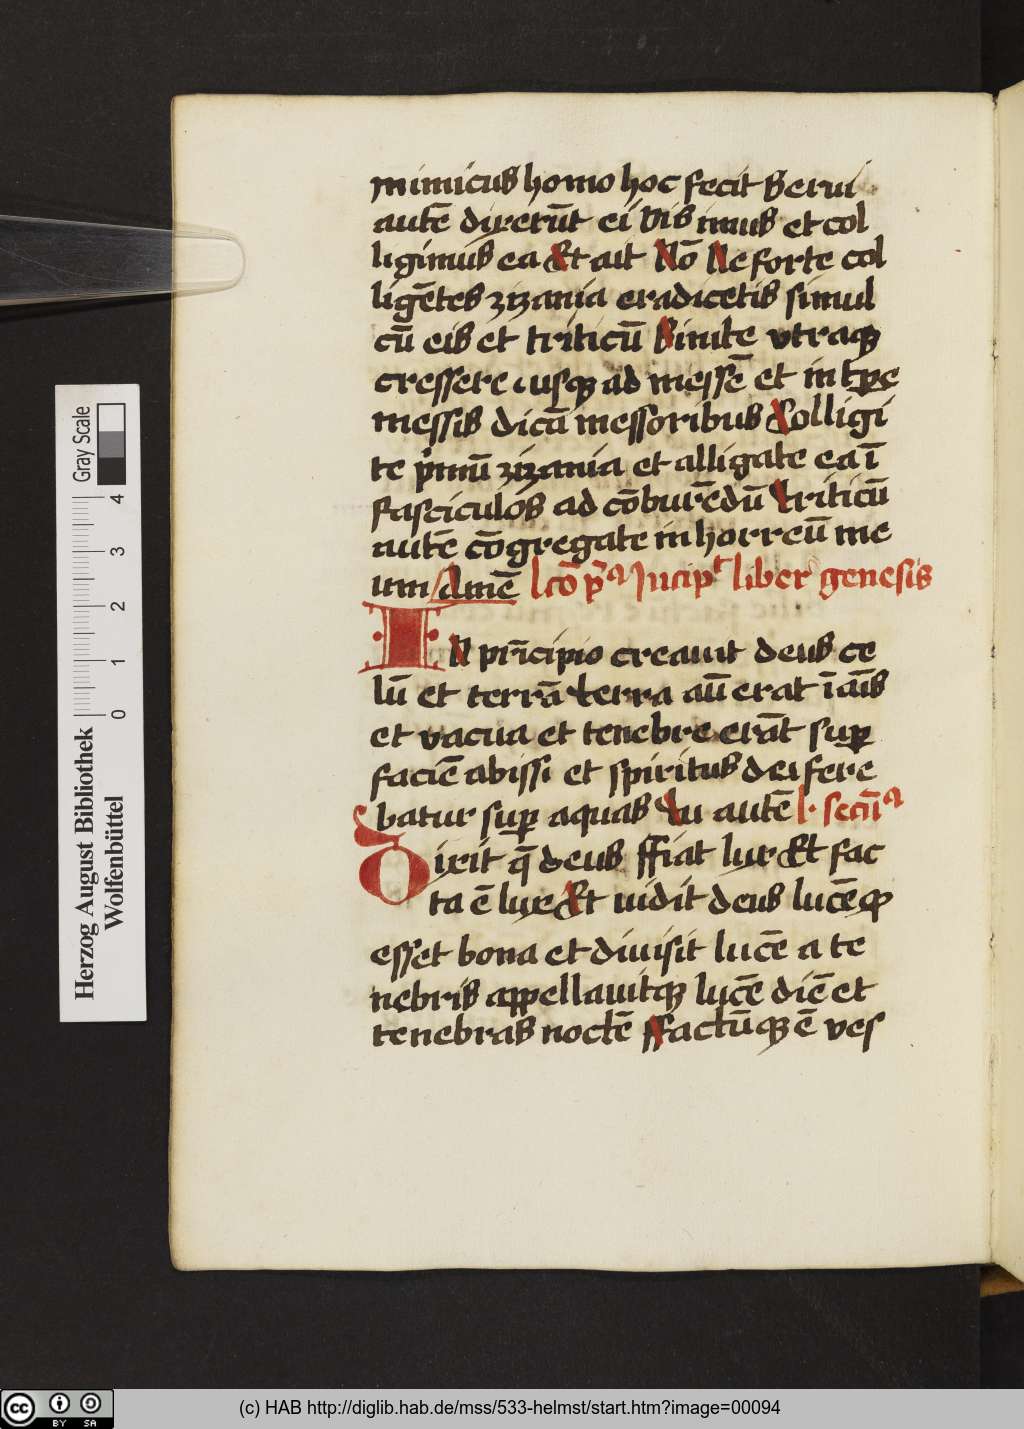 inimicus homo hoc fecit Serui
autē dixerūt ei Vis imus et col
ligimus ea Et ait Nō Ne forte col
ligētes zizania eradicetis simul
cū eis et triticū Sinite vtraqꝫ
cressere usqꝫ ad messē et in tp̄e
messis dicā messoribus Colligi
te pͥmū zizania et alligate ea ī
fasciculos ad cōburēdū triticū
autē cōgregate in horreū me
um Amē lcō pͬᵃ Incipᵗ liber genesis
IN pͥncipio creauit deus ce
lū et terrā terra aū erat īāis
et vacua et tenebre erāt suꝑ
faciē abissi et spiritus dei fere
batur suꝑ aquas tu autē l· secūᵃ
Dixit q̄ deus ffiat lux Et fac
ta ē lux Et uidit deus lucē qꝫ
esset bona et diuisit lucē a te
nebris appellauitqꝫ lucē diē et
tenebras noctē ffactūqꝫ ē ves
Herzog August Bibliothek
Wolfenbüttel
0 1 2 3 4
Gray Scale
cc BY SA
(c) HAB http://diglib.hab.de/mss/533-helmst/start.htm?image=00094